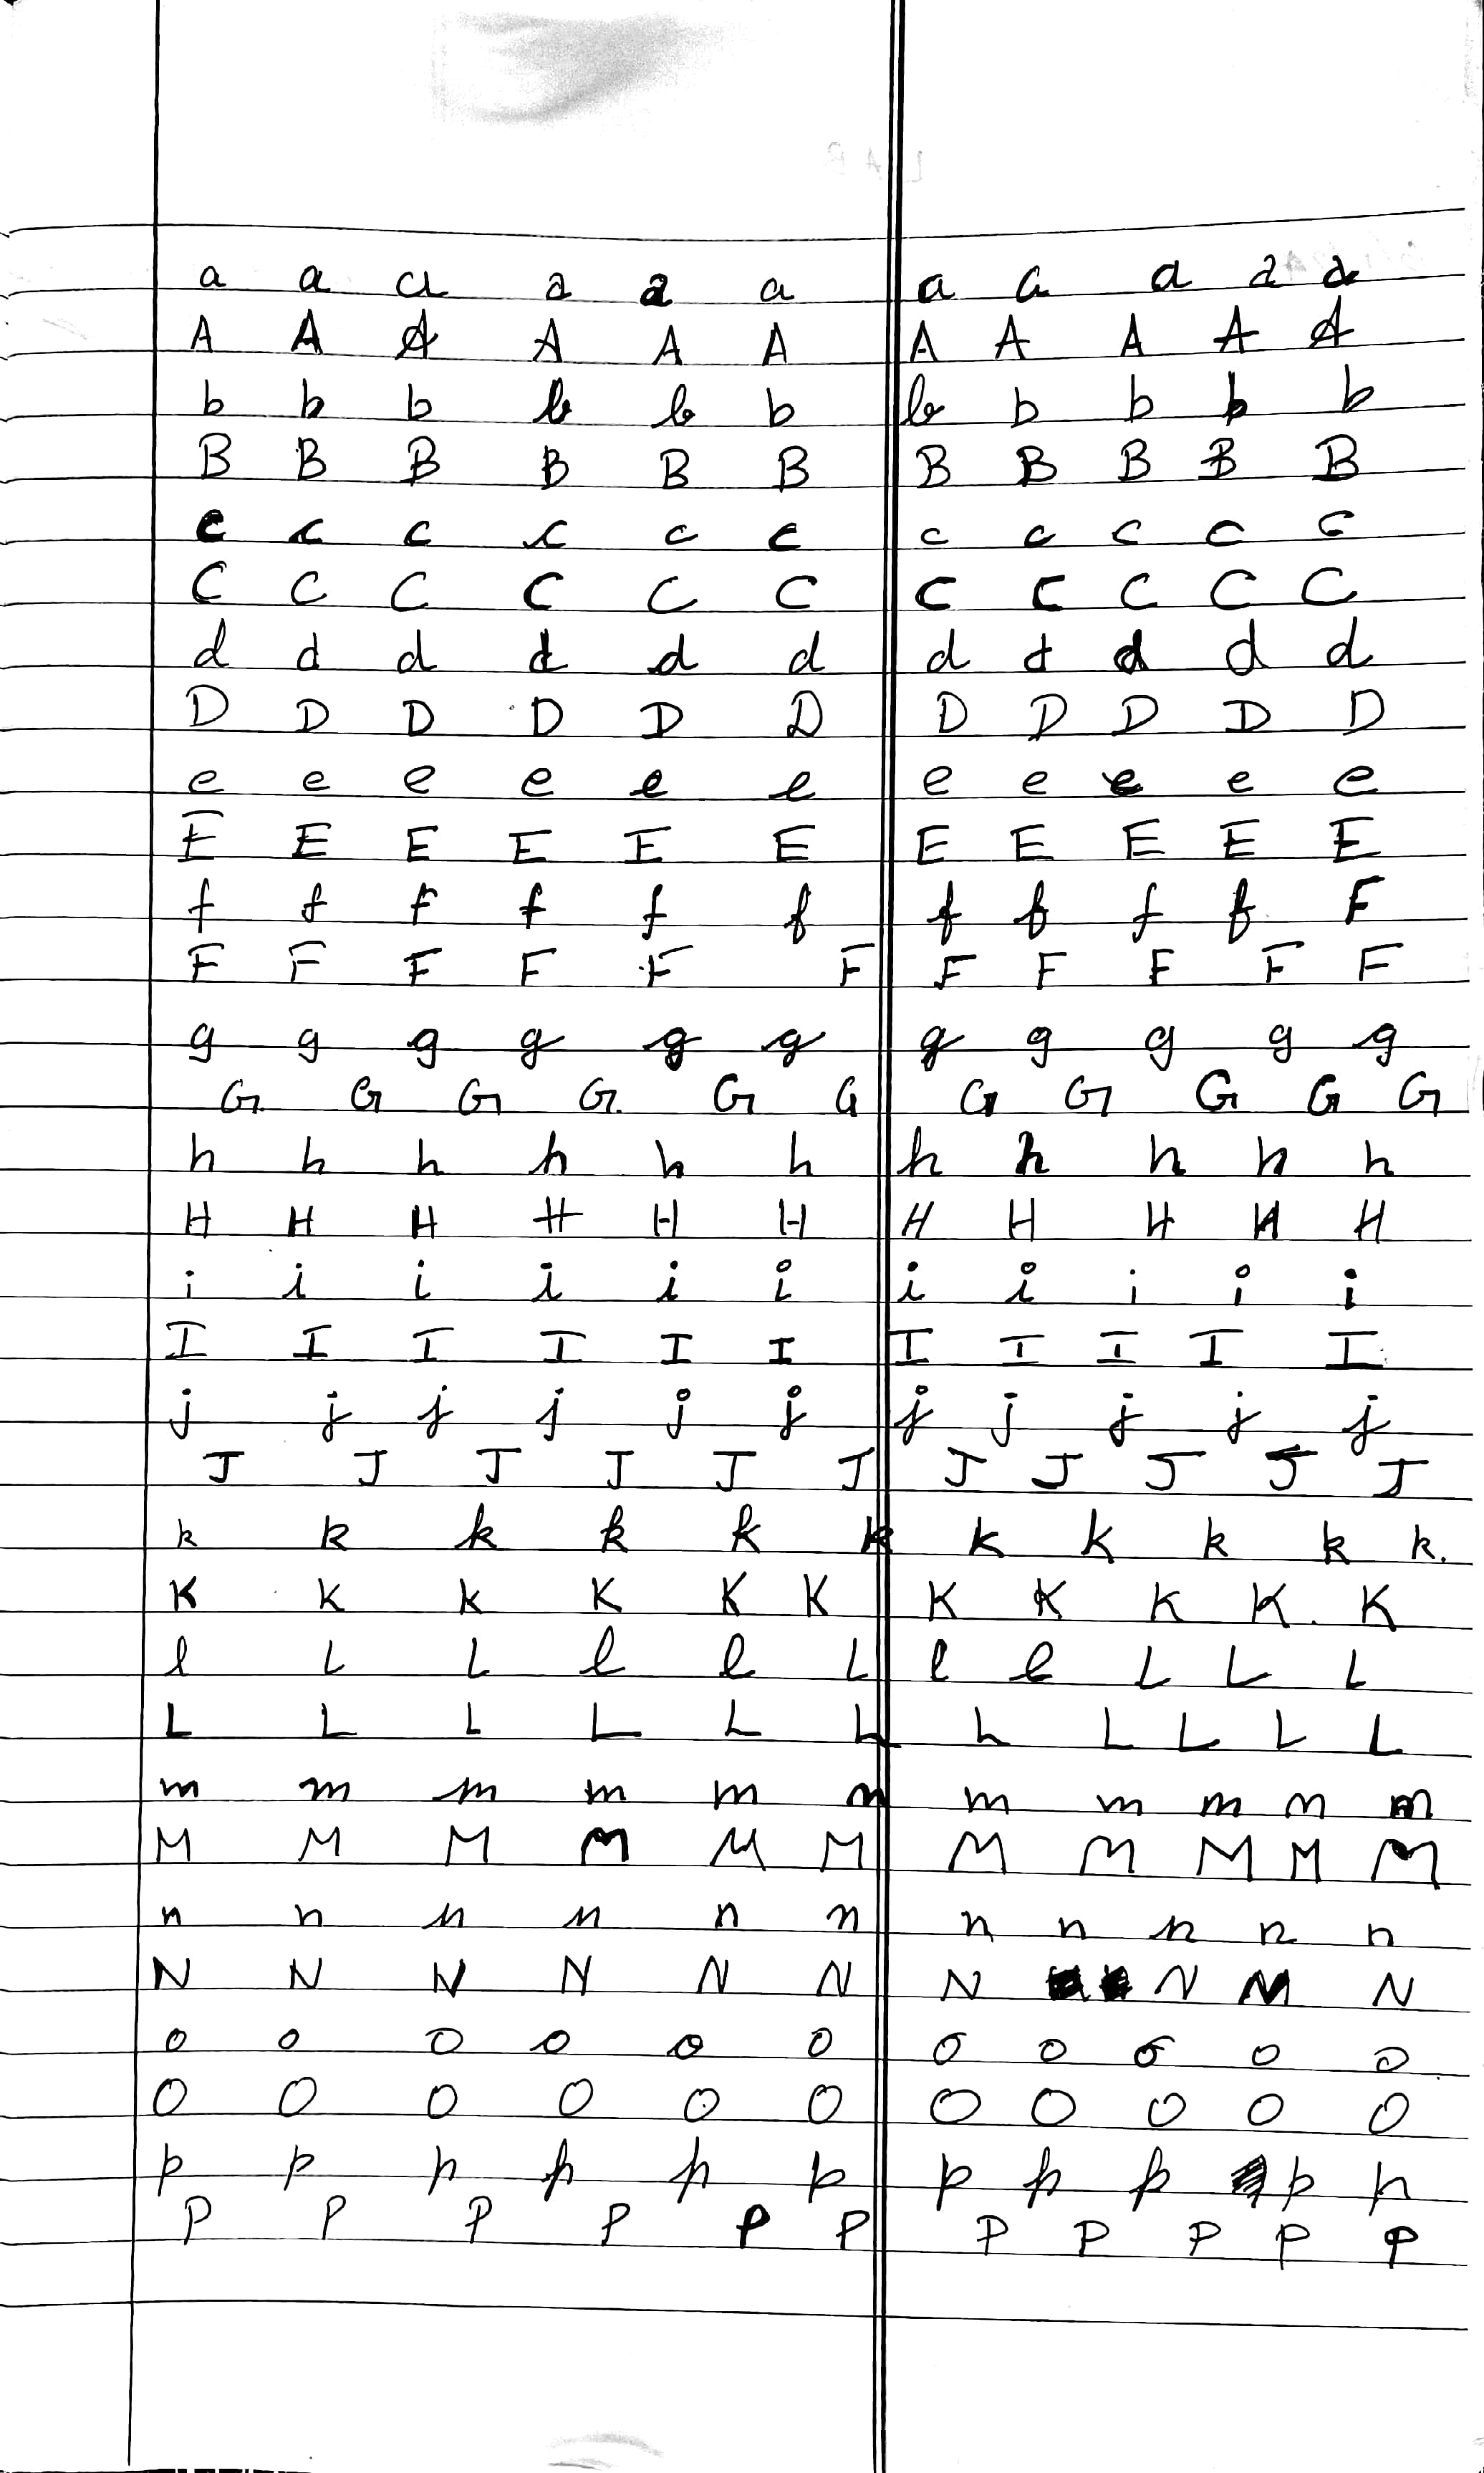 a a a a a a a a a a a
A A A A A A A A A A A
b b b b b b b b b b b
B B B B B B B B B B B
c c c c c c c c c c c
C C C C C C C C C C C
d d d d d d d d d d d
D D D D D D D D D D D
e e e e e e e e e e e
E E E E E E E E E E E
f f f f f f f f f f F
F F F F F F F F F F F
g g g g g g g g g g g
G G G G G G G G G G G
h h h h h h h h h h h
H H H H H H H H H H H
i i i i i i i i i i i
I I I I I I I I I I I
j j j j j j j j j j j
J J J J J J J J J J J
k k k k k k k k k k k.
K K K K K K K K K K K
l L L l l L l l L L L
L L L L L L L L L L L
m m m m m m m m m m m
M M M M M M M M M M M
n n n n n n n n n n n
N N N N N N N N N N
o o o o o o o o o o o
O O O O O O O O O O O
p p p p p p p p p p p
P P P P P P P P P P P